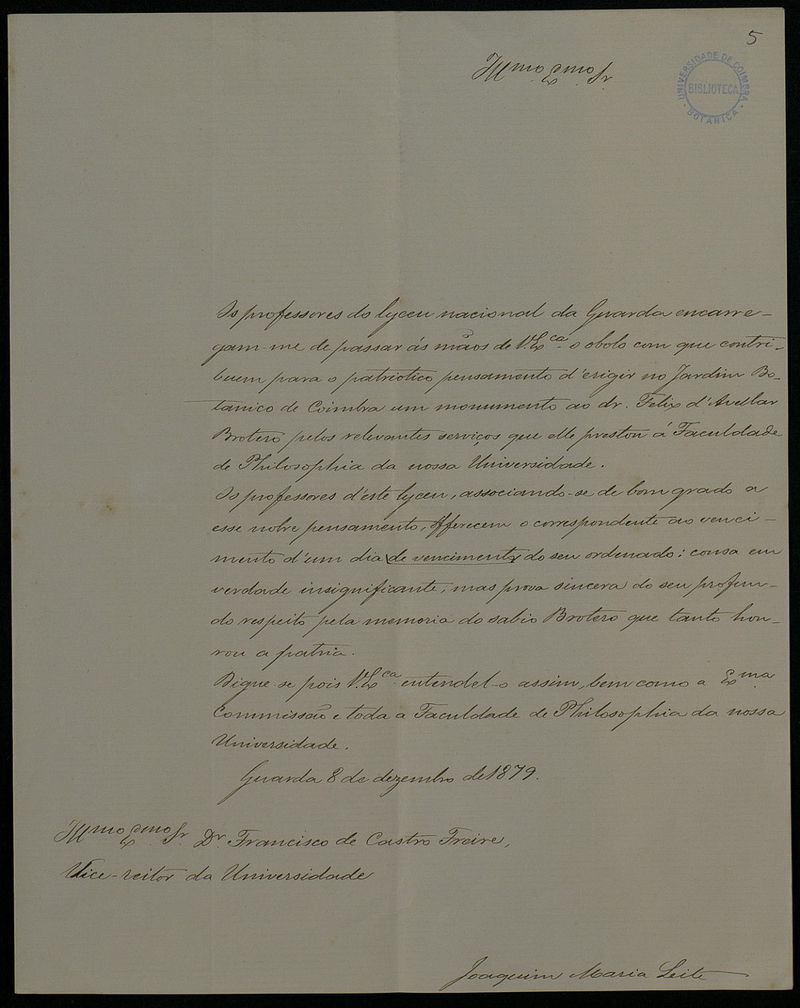 5
Illmo Exmo Sr.
UNIVERSIDADE DE COIMBRA
BIBLIOTECA
BOTANICA
Os professores do lyceu nacional da Guarda encarre-
gam-me de passar ás mãos de V. Exca. o obolo com que contri-
buem para o patriotico pensamento d'erigir no Jardim Bo-
tanico de Coimbra um monumento ao dr. Felix d'Avellar
Brotero pelos relevantes serviços que elle prestou á Faculdade
de Philosophia da nossa Universidade.
Os professores d'este lyceu, associando-se de bom grado a
esse nobre pensamento, offerecem o correspondente ao venci-
mento d'um dia (de vencimento) do seu ordenado: cousa em
verdade insignificante, mas prova sincera do seu profun-
do respeito pela memoria do sabio Brotero que tanto hon-
rou a patria.
Digne-se pois V. Exca entendel-o assim, bem como a Exma
Commissão e toda a Faculdade de Philosophia da nossa
Universidade.
Guarda 8 de dezembro de 1879.
Illmo Exmo Sr. Dr. Francisco de Castro Freire,
Vice-reitor da Universidade
Joaquim Maria Leite